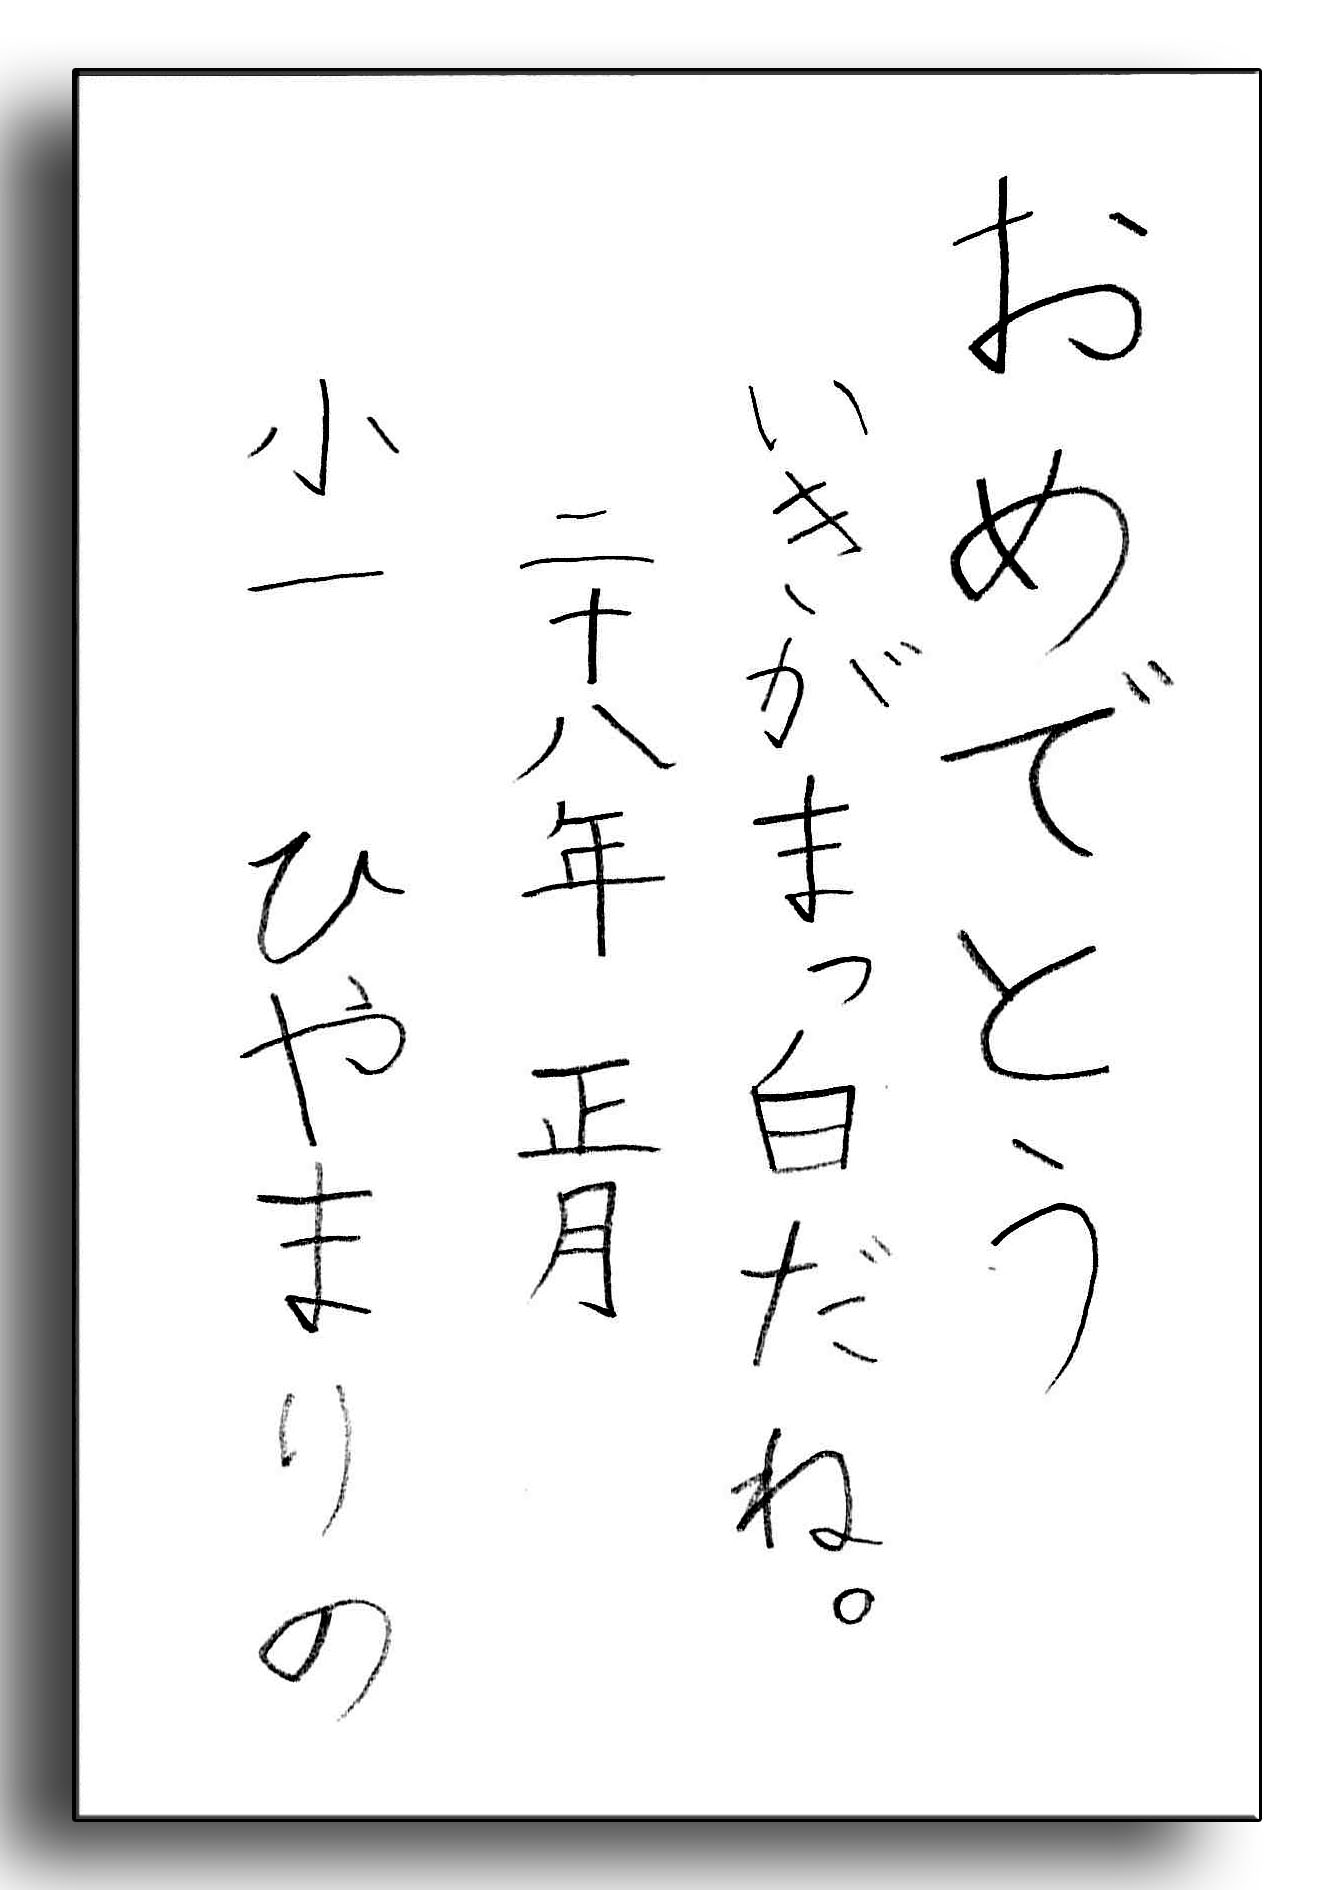 おめでとう
いきがまっ白だね。
二十八年 正月
小一 ひやまりの